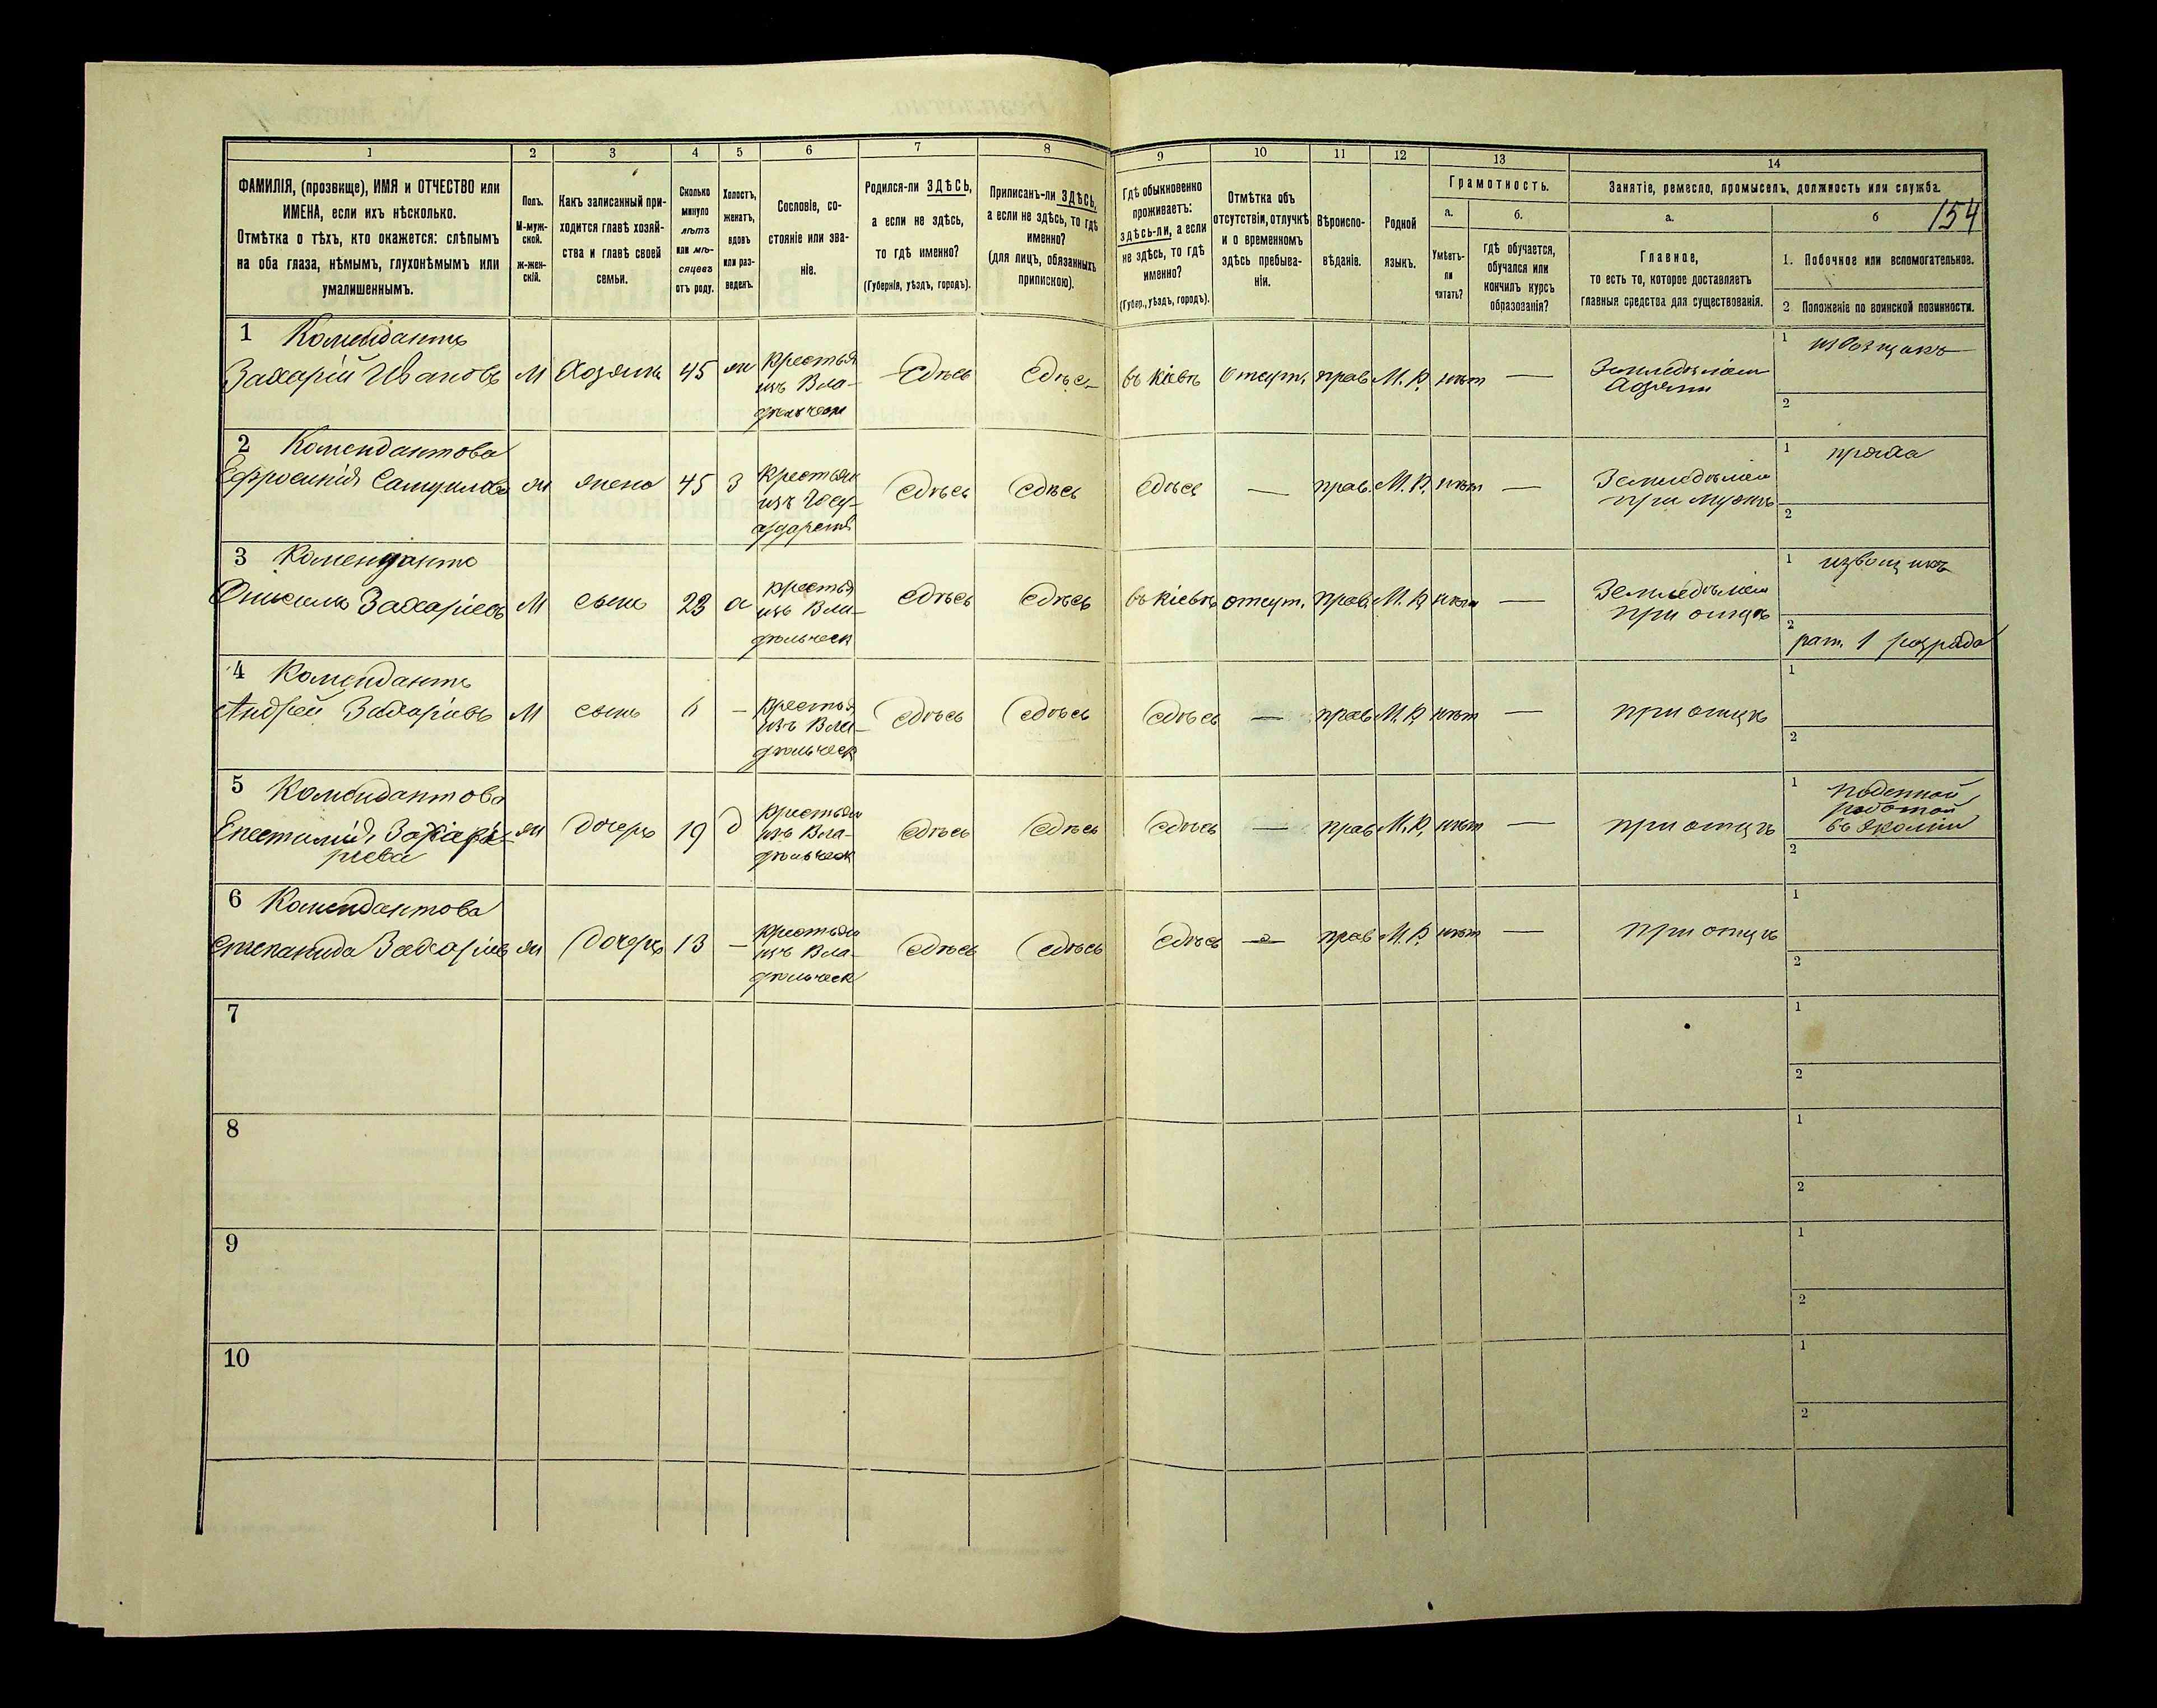 1 2 3 4 5 6 7 8 9 10 11 12 13 14
ФАМИЛІЯ, (прозвище), ИМЯ и ОТЧЕСТВО или
ИМЕНА, если ихъ нѣсколько.
Отмѣтка о тѣхъ, кто окажется: слѣпымъ
на оба глаза, нѣмымъ, глухонѣмымъ или
умалишеннымъ.
Полъ.
М-муж-
ской.
Ж-жен-
скій.
Какъ записанный при-
ходится главѣ хозяй-
ства и главѣ своей
семьи.
Сколько
минуло
лѣтъ
или мѣ-
сяцевъ
отъ роду.
Холостъ,
женатъ,
вдовъ
или раз-
веденъ.
Сословіе, со-
стояніе или зва-
ніе.
Родился-ли ЗДѢСЬ,
а если не здѣсь,
то гдѣ именно?
(Губернія, уѣздъ, городъ).
Приписанъ-ли ЗДѢСЬ,
а если не здѣсь, то гдѣ
именно?
(для лицъ, обязанныхъ
припискою).
Гдѣ обыкновенно
проживаетъ:
здѣсь-ли, а если
не здѣсь, то гдѣ
именно?
(Губер., уѣздъ, городъ).
Отмѣтка объ
отсутствіи, отлучкѣ
и о временномъ
здѣсь пребыва-
ніи.
Вѣроиспо-
вѣданіе.
Родной
языкъ.
Грамотность.
а.
Умѣетъ-
ли
читать?
б.
гдѣ обучается,
обучался или
кончилъ курсъ
образованія?
Занятіе, ремесло, промыселъ, должность или служба.
а.
Главное,
то есть то, которое доставляетъ
главныя средства для существованія.
б
154
1. Побочное или вспомогательное.
2 Положеніе по воинской повинности.
1 Комендантъ
Захарій Ивановъ М Хозяинъ 45 ж Крестья
изъ Вла-
дѣльчески
Сдѣсь Сдѣсь въ Кіевѣ отсут. прав. М. Р. нѣтъ —
Земледѣліем
1 извозщикъ
2
2 Комендантова
Ефросинія ж жена 45 З Крестьян
изъ Госу-
Сдѣсь Сдѣсь Сдѣсь — прав. М. Р. нѣтъ —
Земледѣліем
при мужѣ
1 пряха
2
3 Комендантъ
Захаріевъ М сынъ 23 х Крестья
изъ Вла-
дѣльческ
Сдѣсь Сдѣсь въ Кіевѣ отсут. Прав. М. Р. нѣтъ —
Земледѣліем
при отцѣ
1 извощикъ
2 рат. 1 розряда
4 Комендантъ
Андрей Захаріевъ М сынъ 6 — Крестья
изъ Вла-
дѣльческ
Сдѣсь Сдѣсь Сдѣсь — прав М. Р. нѣтъ —
при отцѣ
1
2
5 Комендантова
Епестимія Захарі-
рiева
ж дочерь 19 д Крестьян
изъ Вла-
дѣльческ
Сдѣсь Сдѣсь Сдѣсь — прав М. Р. нѣтъ —
при отцѣ
1 поденной
работой
въ Экономіи
2
6 Комендантова
Степанида Захаріев ж дочерь 13 — Крестьян
изъ Вла-
дѣльческ
Сдѣсь Сдѣсь Сдѣсь — прав М. Р. нѣтъ —
при отцѣ
1
2
7 1
2
8 1
2
9 1
2
10 1
2